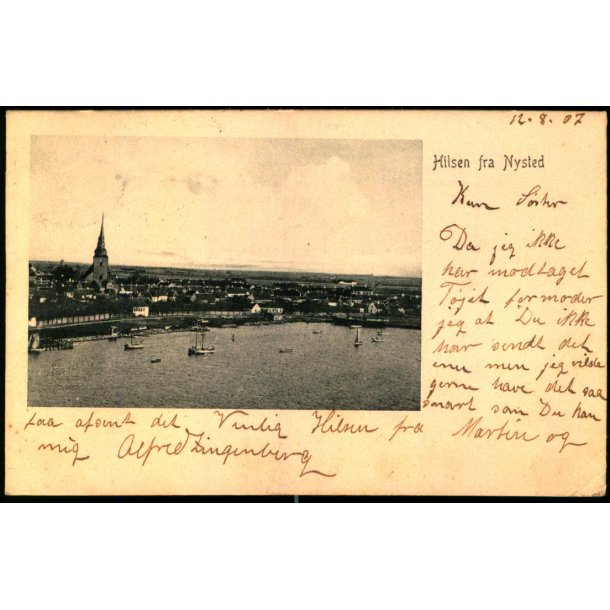 12.8.07
Hilsen fra Nysted
Kære Søster
Da jeg ikke
har modtaget
Tøjet formoder
jeg at Du ikke
har sendt det
enu men jeg vilde
gerne have det saa
snart som Du kan
faa afsent det. Venlig Hilsen fra Martin og
mig Alfred Zingenberg